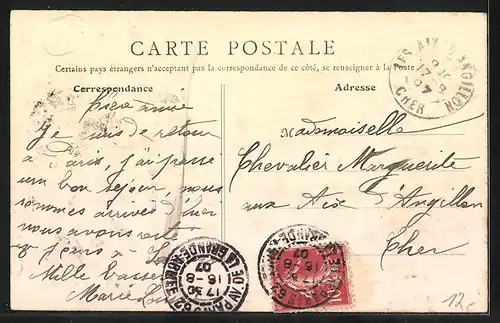 CARTE POSTALE
Certains pays étrangers n'acceptant pas la correspondance de ce côté, se renseigner à la Poste
Correspondance
Adresse
Chère amie
Je suis de retour
à Paris, j'ai passé
un bon séjour, nous
sommes arrivés d'hier
nous avons resté
8 jours à
Mille baisers
Marie
Mademoiselle
Chevalier Marguerite
aux Aix d'Angillon
Cher
LES AIX-D'ANGILLON
17 8
07
CHER
PARIS 62
17 30
16 - 8
07
AV DE LA GRANDE ARMÉE
16 - 8
07
12.-